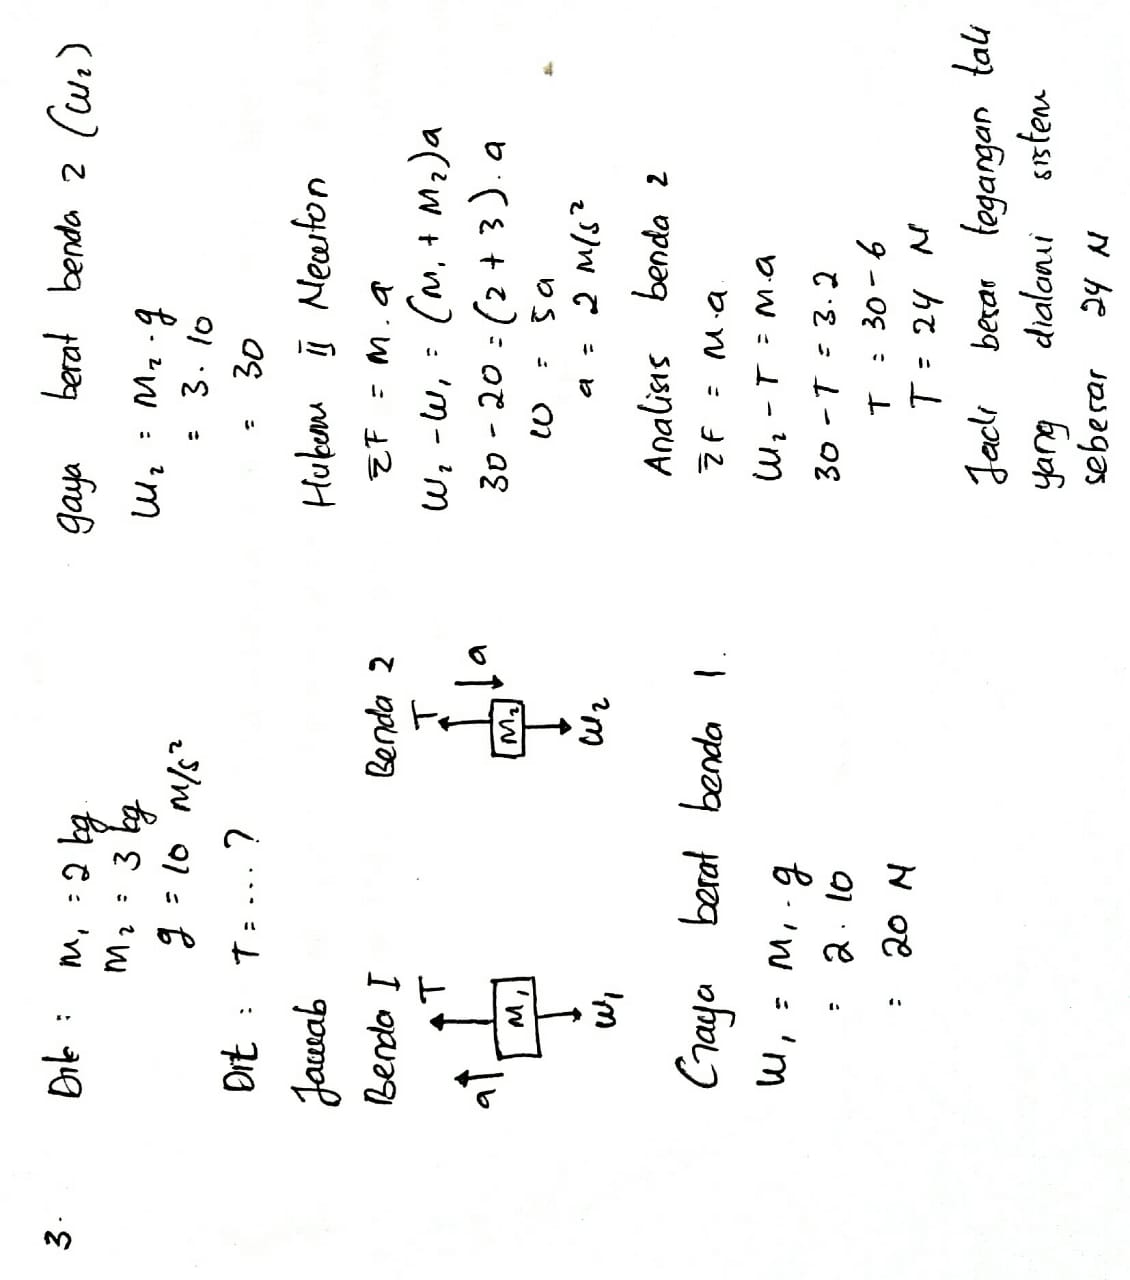 3.
Dik : m₁ = 2 kg.
m₂ = 3 kg
g = 10 m/s²
Dit : T = .... ?
Jawab
Benda I
Benda 2
a
T
m₁
w₁
T
a
m₂
w₂
Gaya berat benda 1.
w₁ = m₁ . g
= 2 . 10
= 20 N
gaya berat benda 2 (w₂)
w₂ = m₂ . g
= 3 . 10
= 30
Hukum II Newton
ΣF = m . a
w₂ - w₁ = (m₁ + m₂)a
30 - 20 = (2 + 3) . a
10 = 5a
a = 2 m/s²
Analisis benda 2
ΣF = m.a.
w₂ - T = m.a
30 - T = 3.2
T = 30 - 6
T = 24 N
Jadi besar tegangan tali
yang dialami sistem
sebesar 24 N